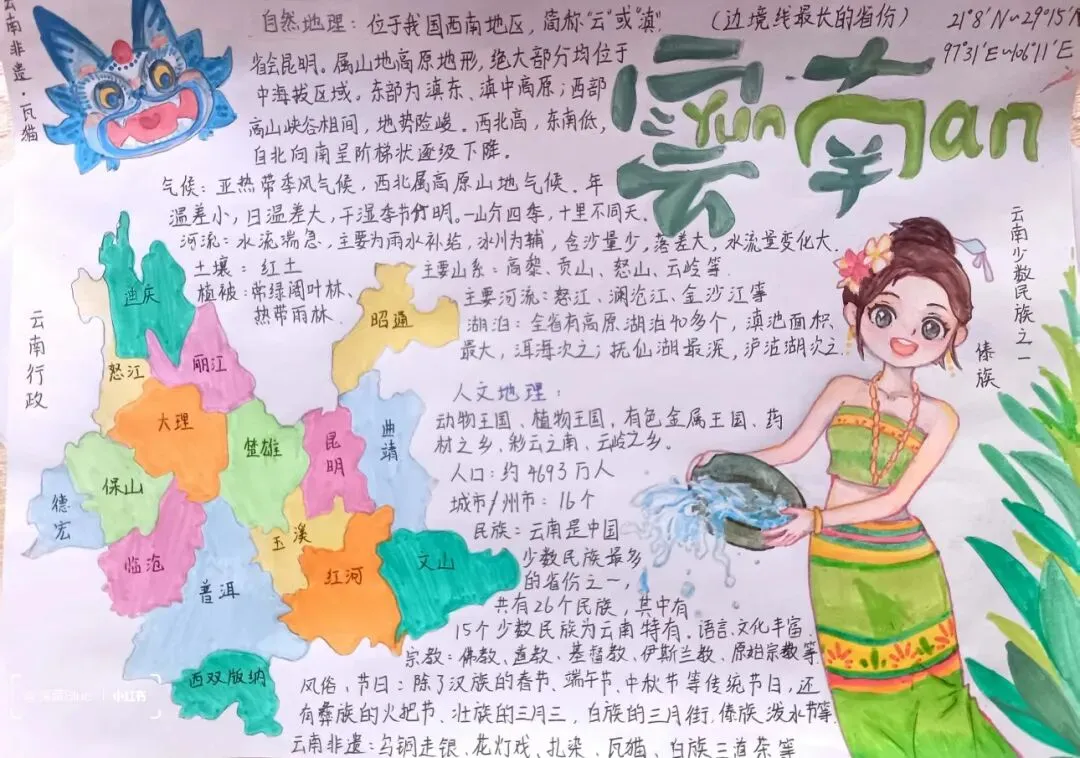 云南非遗·瓦猫
自然地理：位于我国西南地区，简称"云"或"滇"
（边境线最长的省份）
21°8′N~29°15′N
97°31′E~106°11′E
省会昆明。属山地高原地形，绝大部分均位于
中海拔区域。东部为滇东、滇中高原；西部
高山峡谷相间，地势险峻。西北高，东南低，
自北向南呈阶梯状逐级下降。
雲南
Yun nan
气候：亚热带季风气候，西北属高原山地气候。年
温差小，日温差大，干湿季节分明。一山分四季，十里不同天。
河流：水流湍急，主要为雨水补给，冰川为辅，含沙量少，落差大，水流量变化大.
土壤：红土
植被：常绿阔叶林、
热带雨林.
主要山系：高黎、贡山、怒山、云岭等.
主要河流：怒江、澜沧江、金沙江等
湖泊：全省有高原湖泊40多个，滇池面积
最大，洱海次之；抚仙湖最深，泸沽湖次之.
云南少数民族之一
傣族
云南行政
迪庆
怒江
丽江
昭通
大理
楚雄
昆明
曲靖
保山
德宏
临沧
普洱
玉溪
红河
文山
西双版纳
人文地理：
动物王国、植物王国、有色金属王国、药
材之乡、彩云之南、云岭之乡.
人口：约4693万人
城市/州市：16个
民族：云南是中国
少数民族最多
的省份之一，
共有26个民族，其中有
15个少数民族为云南特有.语言.文化丰富.
宗教：佛教、道教、基督教、伊斯兰教、原始宗教等
风俗、节日：除了汉族的春节、端午节、中秋节等传统节日，还
有彝族的火把节、壮族的三月三，白族的三月街，傣族泼水节等.
云南非遗：乌铜走银、花灯戏、扎染、瓦猫、白族三道茶等
小红书